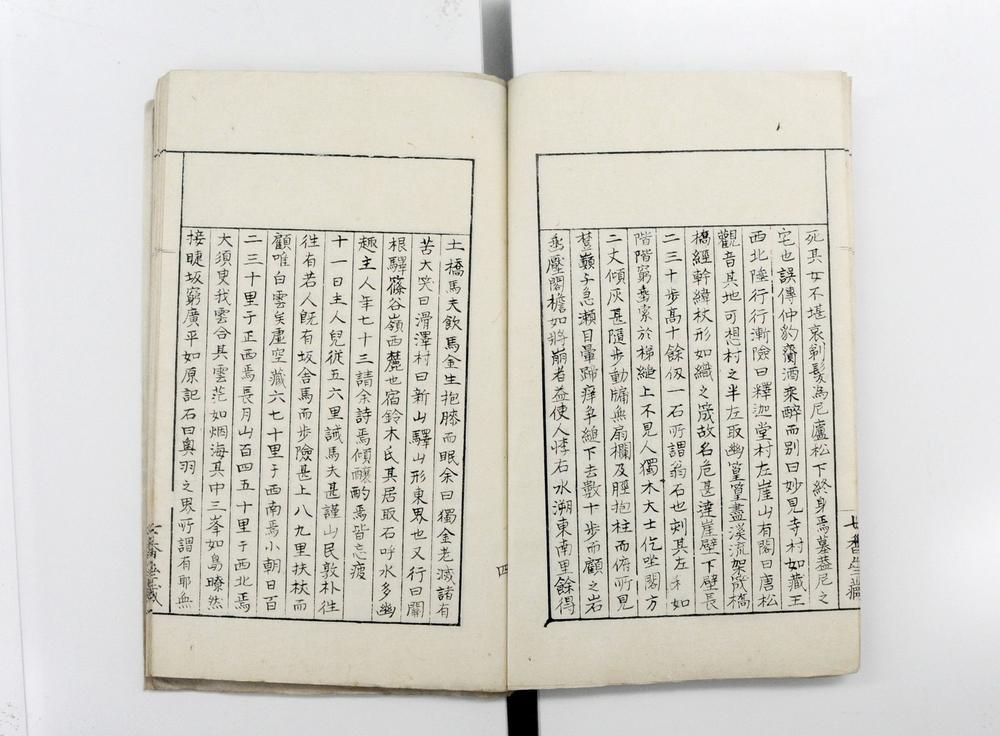 死其女不堪哀剃髮為尼廬松下終身焉墓葢尼之
宅也誤傳仲豹齎酒來醉而別曰妙見寺村如藏王
西北陸行行漸險曰釋迦堂村左崖山有閣曰唐松
觀音其地可想村之半左取幽篁篁盡溪流架箴橋
橋經幹緯杖形如織之箴故名危甚達崖壁下壁長
二三十步高十餘仭一石所謂翁石也刻其左和如
階階窮蛬家於梯縋上不見人獨木大士仡坐閣方
二丈傾灰甚隨步動牖無扇欄及脛抱柱而俯所見
楚巔子急瀬目暈蹄痒争縋下去數十步而顧之岩
埀壓閣檐如將崩者益使人悸右水溯東南里餘得
土橋馬夫飲馬金生抱膝而眠余曰獨金老減諸有
苦大笑曰滑澤村曰新山驛山形東界也又行曰關
根驛篠谷嶺西麓也宿鈴木氏其居取石呼水多幽
趣主人年七十三請余詩焉傾釀酌焉皆忘疲
十一日主人兒從五六里誡馬夫甚謹山民敦朴徃
徃有若人既有坂舎馬而步險甚上八九里扶杖而
顧唯白雲矣虛空藏六七十里于西南焉小朝日百
二三十里于正西焉長月山百四五十里于西北焉
大須臾我雲合其雲茫如烟海其中三峯如島瞭然
接睫坂窮廣平如原記石曰奧羽之界所謂有耶無
四